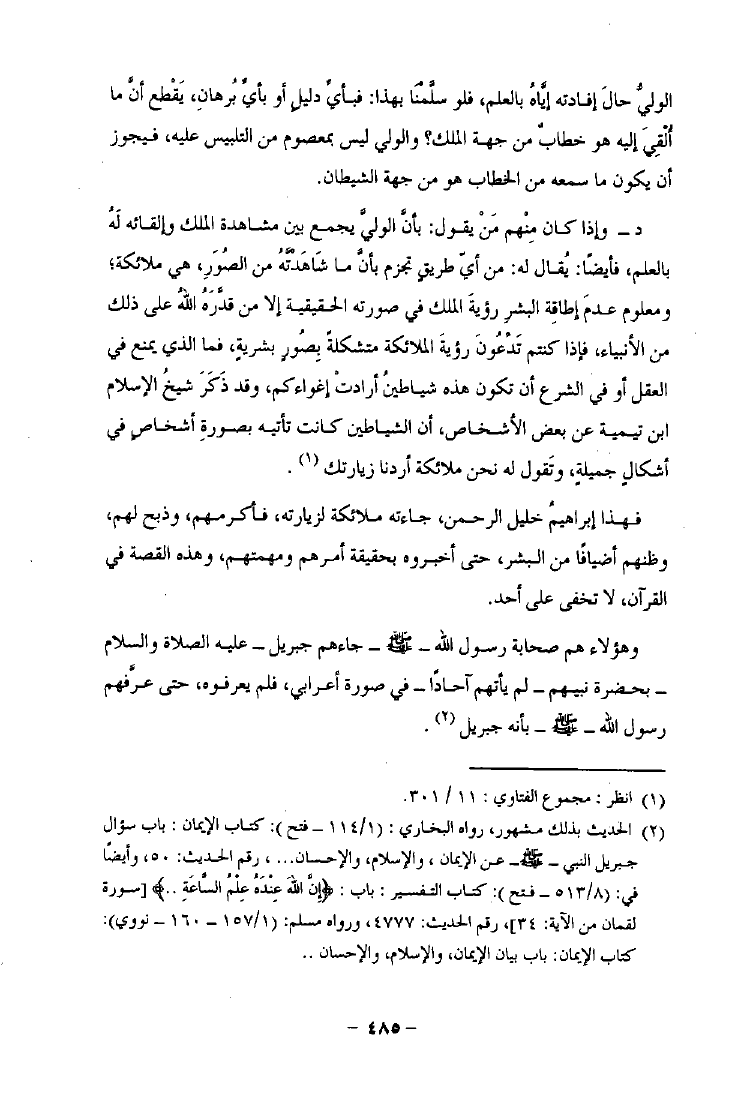 الوليُّ حالَ إفادته إيَّاهُ بالعلم، فلو سلَّمْنَا بهذا: فبأيِّ دليلٍ أو بأيِّ بُرهانٍ، يَقْطع أنَّ ما
أُلْقِيَ إليه هو خطابٌ من جهة الملك؟ والولي ليس بمعصوم من التلبيس عليه، فيجوز
أن يكون ما سمعه من الخطاب هو من جهة الشيطان.
د – وإذا كان مِنْهم مَنْ يقول: بأنَّ الوليَّ يجمع بين مشاهدة الملك وإلقائه لَهُ
بالعلم، فأيضًا: يُقال له: من أيِّ طريقٍ تجزم بأنَّ ما شَاهَدْتَهُ من الصُوَرِ، هي ملائكة؛
ومعلوم عدمَ إطاقةِ البشرِ رؤيةَ الملك في صورته الحقيقية إلا من قدَّرَهُ اللهُ على ذلك
من الأنبياء، فإذا كنتم تَدْعُونَ رؤيةَ الملائكة متشكلةً بِصُورٍ بشريةٍ، فما الذي يمنع في
العقل أو في الشرع أن تكون هذه شياطينُ أرادتْ إغواءكم، وقد ذَكَرَ شيخُ الإسلام
ابن تيمية عن بعض الأشخاص، أن الشياطين كانت تأتيه بصورةِ أشخاص في
أشكالٍ جميلةٍ، وتَقول له نحن ملائكة أردنا زيارتك (١) .
فهذا إبراهيمُ خليل الرحمن، جاءته ملائكة لزيارته، فأكرمهم، وذبح لهم،
وظنهم أضيافًا من البشر، حتى أخبروه بحقيقة أمرهم ومهمتهم، وهذه القصة في
القرآن، لا تخفى على أحد.
وهؤلاء هم صحابة رسول الله – ﷺ – جاءهم جبريل – عليه الصلاة والسلام
– بحضرة نبيهم – لم يأتهم آحادًا – في صورة أعرابي، فلم يعرفوه، حتى عرَّفهم
رسول الله – ﷺ – بأنه جبريل (٢) .
(١) انظر : مجموع الفتاوي : ١١ / ٣٠١.
(٢) الحديث بذلك مشهور، رواه البخاري : (١/ ١١٤ – فتح ): كتاب الإيمان : باب سؤال
جبريل النبي – ﷺ – عن الإيمان ، والإسلام، والإحسان... ، رقم الحديث: ٥٠، وأيضًا
في: (٨/ ٥١٣ – فتح ): كتاب التفسير : باب : ﴿إِنَّ اللَّهَ عِنْدَهُ عِلْمُ السَّاعَةِ ..﴾ [سورة
لقمان من الآية: ٣٤]، رقم الحديث: ٤٧٧٧، ورواه مسلم: (١/ ١٥٧ – ١٦٠ – نووي):
كتاب الإيمان: باب بيان الإيمان، والإسلام، والإحسان ..
– ٤٨٥ –